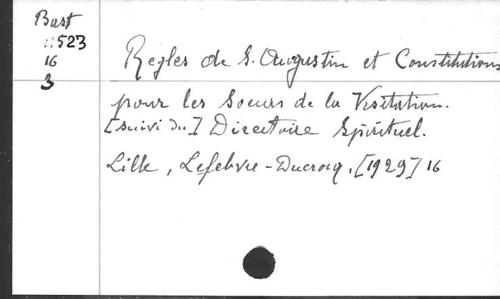 Bast
11523
16
3
Regles de S. Augustin et Constitutions
pour les Soeurs de la Visitation.
[suivi du] Directoire Spirituel.
Lille, Lefebvre-Ducrocq, [1929] 16